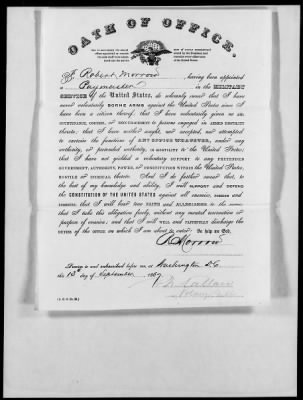 OATH OF OFFICE.
I, Robert Morrow, having been appointed
a Paymaster in the MILITARY
SERVICE of the United States, do solemnly swear that I have
never voluntarily BORNE ARMS against the United States since I
have been a citizen thereof; that I have voluntarily given no AID,
COUNTENANCE, COUNSEL, or ENCOURAGEMENT to persons engaged in ARMED HOSTILITY
thereto; that I have neither sought, nor accepted, nor attempted
to exercise the functions of ANY OFFICE WHATEVER, under any
authority, or pretended authority, in HOSTILITY to the United States;
that I have not yielded a voluntary SUPPORT to ANY PRETENDED
GOVERNMENT, AUTHORITY, POWER, or CONSTITUTION WITHIN the UNITED STATES,
HOSTILE or INIMICAL thereto. And I do further swear that, to
the best of my knowledge and ability, I will SUPPORT and DEFEND
the CONSTITUTION OF THE UNITED STATES against all ENEMIES, FOREIGN and
DOMESTIC; that I will bear TRUE FAITH and ALLEGIANCE to the same;
that I take this obligation freely, without any mental reservation or
purpose of evasion; and that I will WELL and FAITHFULLY DISCHARGE the
DUTIES of the OFFICE on which I am about to enter: So help me God.
R Morrow
Sworn to and subscribed before me, at Washington D.C.
this 13th day of September, 1867